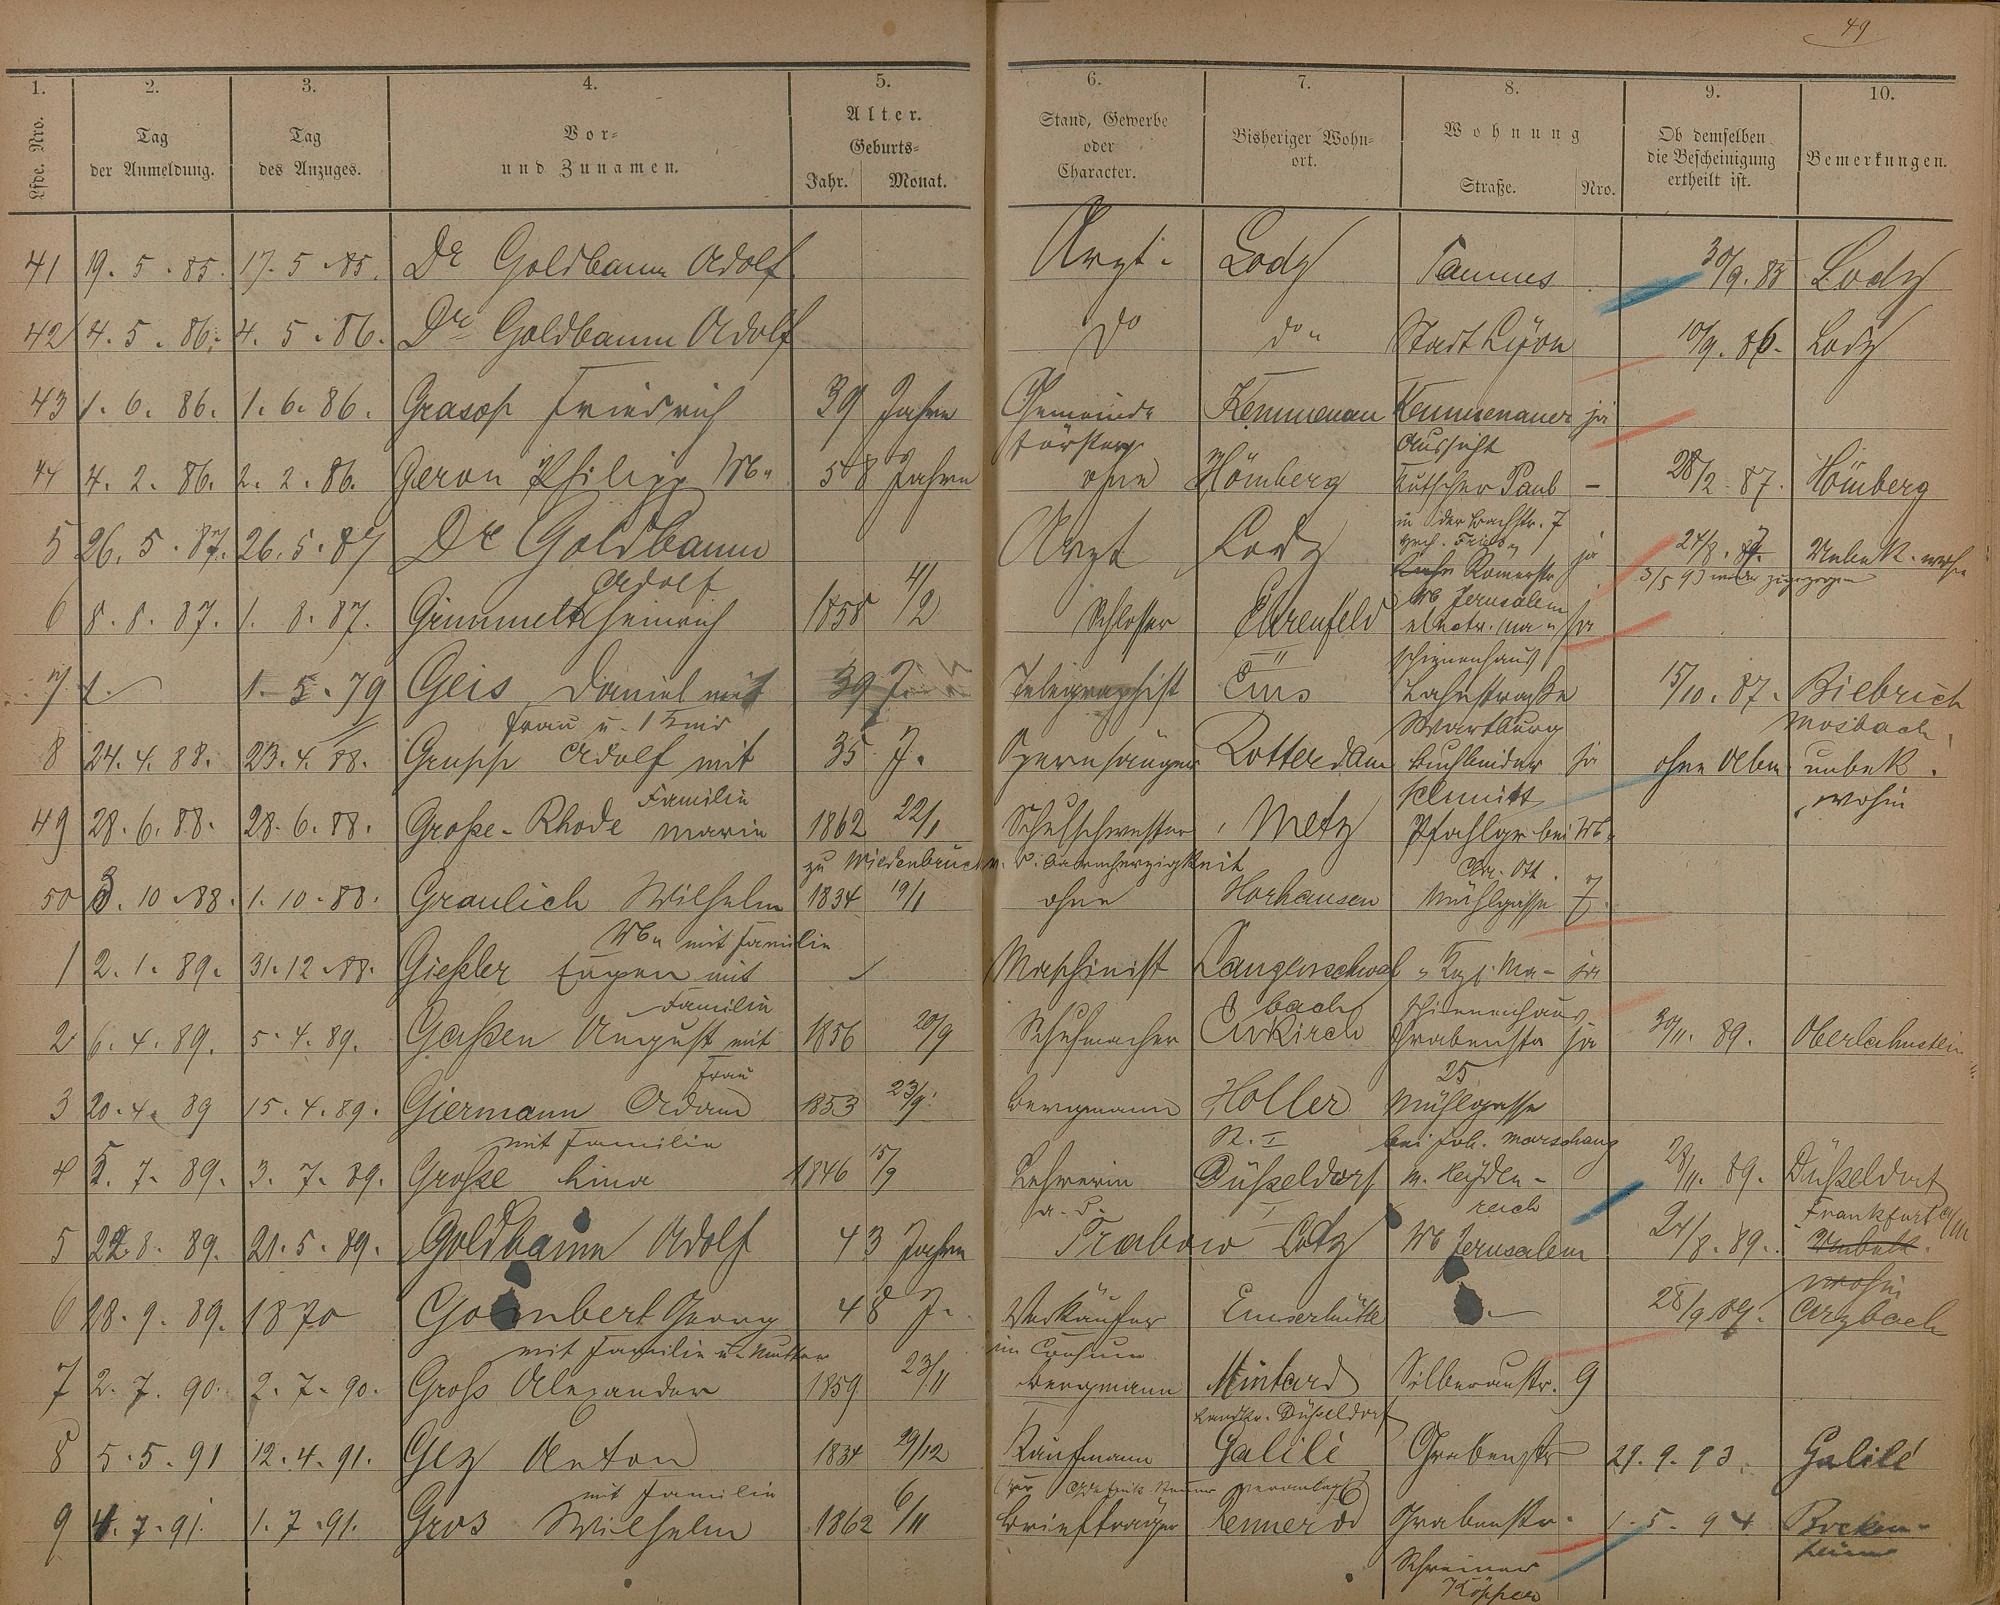 49
1. 2. 3. 4. 5. 6. 7. 8. 9. 10.
Lfde. Nro.
Tag der Anmeldung.
Tag des Anzuges.
Vor- und Zunamen.
Alter. Geburts- Jahr. Monat.
Stand, Gewerbe oder Character.
Bisheriger Wohn- ort.
Wohnung Straße. Nro.
Ob demselben die Bescheinigung ertheilt ist.
Bemerkungen.
41 19. 5. 85. 17. 5. 85. Dr Goldbaum Adolf Arzt. Lodz Taunus 30/9. 85 Lodz
42 4. 5. 86. 4. 5. 86. Dr Goldbaum Adolf do do Stadt Lyon 10/9. 86. Lodz
43 1. 6. 86. 1. 6. 86. Friedrich 39 Jahre Gemeinde Kemmenau Kemmenauer ja
förster Aussicht
44 4. 2. 86. 2. 2. 86. Geron Philipp Ww. 58 Jahre ohne Hömberg Kutscher Paul – 28/2. 87. Hömberg
in der Bachstr. 7
5 26. 5. 87. 26. 5. 87 Dr Goldbaum Arzt Lodz Römerstr ja 24/8. 87. Unbek. wohin
Adolf Ww Jerusalem
6 8. 8. 87. 1. 8. 87. Heinrich 1858 4/2 Schlosser Ehrenfeld electr. Ma- ja
schienenhaus
7 1. 5. 79 Geis Daniel mit 39 J. Telegraphist Ems Lahnstraße 15/10. 87. Biebrich
Frau u. 1 Kind Wartburg Mosbach
8 24. 4. 88. 23. 4. 88. Grupp Adolf mit 35 J. Opernsänger Rotterdam Buchbinder ja ohne Abm. unbek.
Familie Schmitt wohin
49 28. 6. 88. 28. 6. 88. Große-Rhode Marie 1862 22/1 Schulschwester Metz Pfahlgr bei Ww.
zu Wiedenbrück v. d. Barmherzigkeit Chr. Ott.
50 3. 10. 88. 1. 10. 88. Graulich Wilhelm 1834 19/1 ohne Horhausen Mühlgasse 7.
Ww. mit Familie
1 2. 1. 89. 31. 12. 88. Gießler Eugen mit Maschinist Langenschwal Kgl. Ma- ja
Familie bach schienenhaus
2 6. 4. 89. 5. 4. 89. Gaßen August mit 1856 20/9 Schuhmacher Grabenstr ja 30/11. 89. Oberlahnstein
Frau 25
3 20. 4. 89 15. 4. 89. Giermann Adam 1853 23/9. Bergmann Holler Mühlgasse
mit Familie bei Joh. Marschang
4 5. 7. 89. 3. 7. 89. Große Lina 1846 15/9 Lehrerin Düßeldorf M. Heyden- 28/11. 89. Düßeldorf
a. D. reich Frankfurt a/M
5 22. 8. 89. 21. 5. 89. Goldbaum Adolf 43 Jahre Lodz Ww Jerusalem 24/8. 89. Unbek.
wohin
6 28. 9. 89. 1870 Gombert Georg 48 J. Verkäufer Emserhütte 28/9 89. Arzbach
mit Familie u. Mutter im Consum
7 2. 7. 90. 2. 7. 90. Groß Alexander 1859 23/11 Bergmann Mintard Silberaustr. 9
Landkr. Düßeldorf
8 5. 5. 91 12. 4. 91. Gez Anton 1834 29/12 Kaufmann Galilé Grabenstr 29. 9. 93. Galilé
mit Familie
9 4. 7. 91. 1. 7. 91. Gros Wilhelm 1862 6/11 Briefträger Rennerod Grabenstr. 1. 5. 94 Bocken-
heim
Schreiner